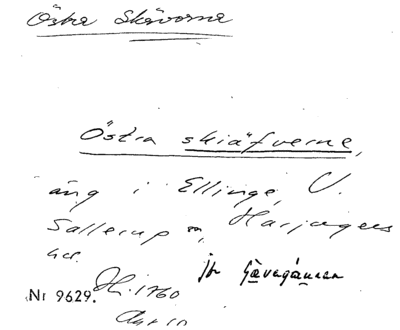 Östra Skävorna
Östra skiäfverne,
äng i Ellinge, V.
Sallerup sn, Harjagers
hd.
jfr Gävugånnan
Nr 9629. Hi. 1760